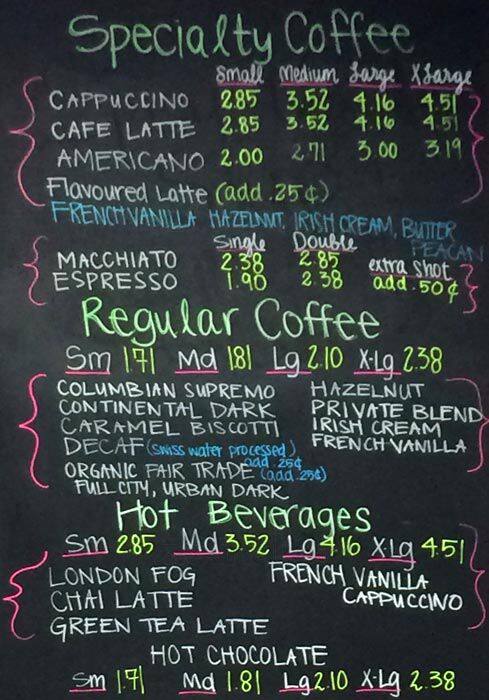 Specialty Coffee
Small Medium Large X Large
CAPPUCCINO 2.85 3.52 4.16 4.51
CAFE LATTE 2.85 3.52 4.16 4.51
AMERICANO 2.00 2.71 3.00 3.19
Flavoured Latte (add .25¢)
FRENCH VANILLA HAZELNUT, IRISH CREAM, BUTTER
PEACAN
Single Double
MACCHIATO 2.38 2.85 extra shot
ESPRESSO 1.90 2.38 add .50¢
Regular Coffee
Sm 1.71 Md 1.81 Lg 2.10 X-Lg 2.38
COLUMBIAN SUPREMO HAZELNUT
CONTINENTAL DARK PRIVATE BLEND
CARAMEL BISCOTTI IRISH CREAM
DECAF (swiss water processed) FRENCH VANILLA
add .25¢
ORGANIC FAIR TRADE (add .25¢)
FULL CITY, URBAN DARK
Hot Beverages
Sm 2.85 Md 3.52 Lg 4.16 X-Lg 4.51
LONDON FOG FRENCH VANILLA
CHAI LATTE CAPPUCCINO
GREEN TEA LATTE
HOT CHOCOLATE
Sm 1.71 Md 1.81 Lg 2.10 X-Lg 2.38